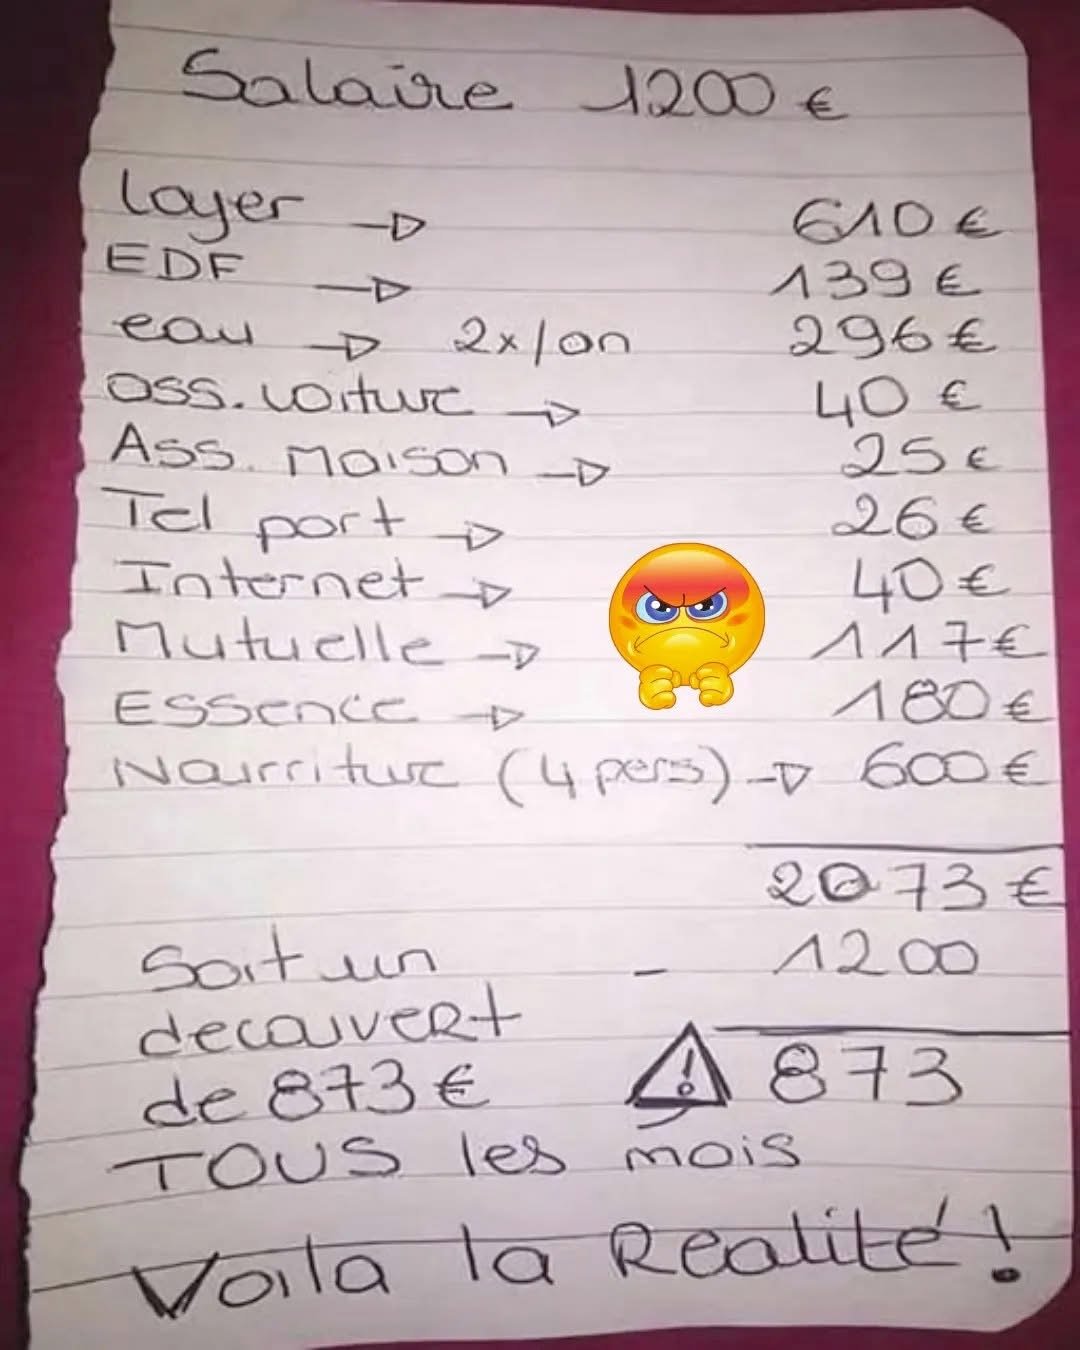 Salaire 1200 €
Loyer → 610 €
EDF → 139 €
eau → 2x/an 296 €
ass. voiture → 40 €
Ass. Maison → 25 €
Tel port → 26 €
Internet → 40 €
Mutuelle → 117 €
Essence → 180 €
Nourriture (4 pers) → 600 €
2073 €
Soit un - 1200
decouvert
de 873 € 873
TOUS les mois
Voila la Realité !